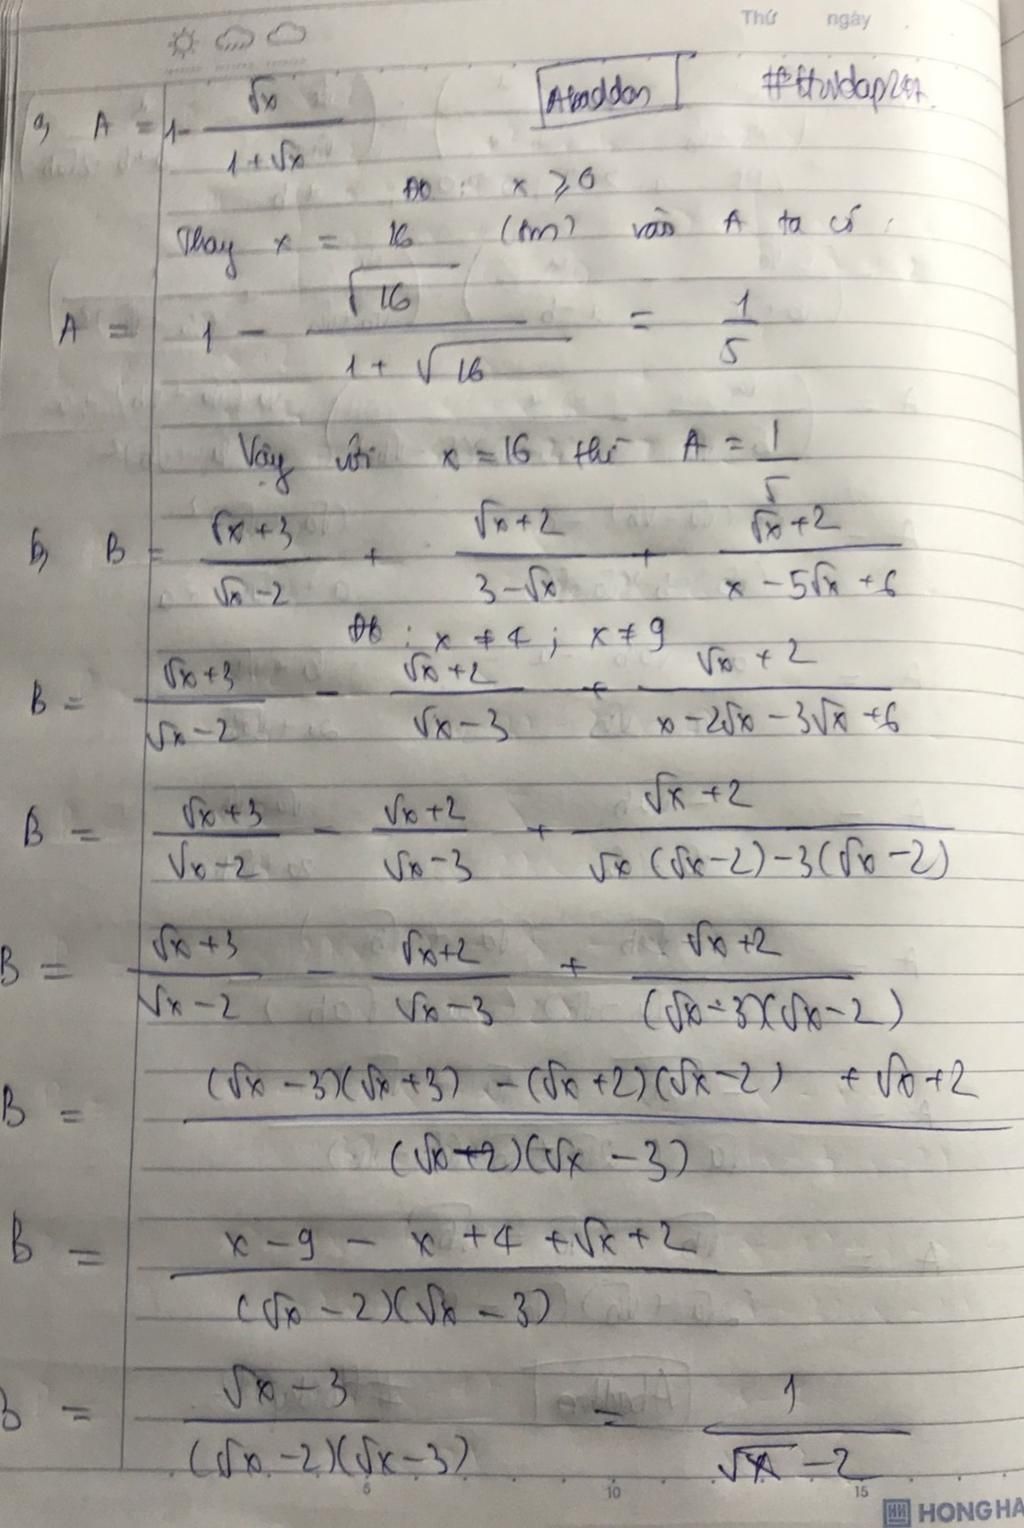 Thứ ngày
Abaddon
a, A = 1 - √x / (1 + √x)
Đk : x ≥ 0
Thay x = 16 (tm) vào A ta có :
A = 1 - √16 / (1 + √16) = 1/5
Vậy với x = 16 thì A = 1/5
b, B = (√x + 3)/(√x - 2) + (√x + 2)/(3 - √x) + (√x + 2)/(x - 5√x + 6)
Đk : x ≠ 4 ; x ≠ 9
B = (√x + 3)/(√x - 2) - (√x + 2)/(√x - 3) + (√x + 2)/(x - 2√x - 3√x + 6)
B = (√x + 3)/(√x - 2) - (√x + 2)/(√x - 3) + (√x + 2)/(√x (√x - 2) - 3(√x - 2))
B = (√x + 3)/(√x - 2) - (√x + 2)/(√x - 3) + (√x + 2)/((√x - 3)(√x - 2))
B = ((√x - 3)(√x + 3) - (√x + 2)(√x - 2) + √x + 2)/((√x + 2)(√x - 3))
B = (x - 9 - x + 4 + √x + 2)/((√x - 2)(√x - 3))
B = (√x - 3)/((√x - 2)(√x - 3)) = 1/(√x - 2)
5 10 15
HONG HA